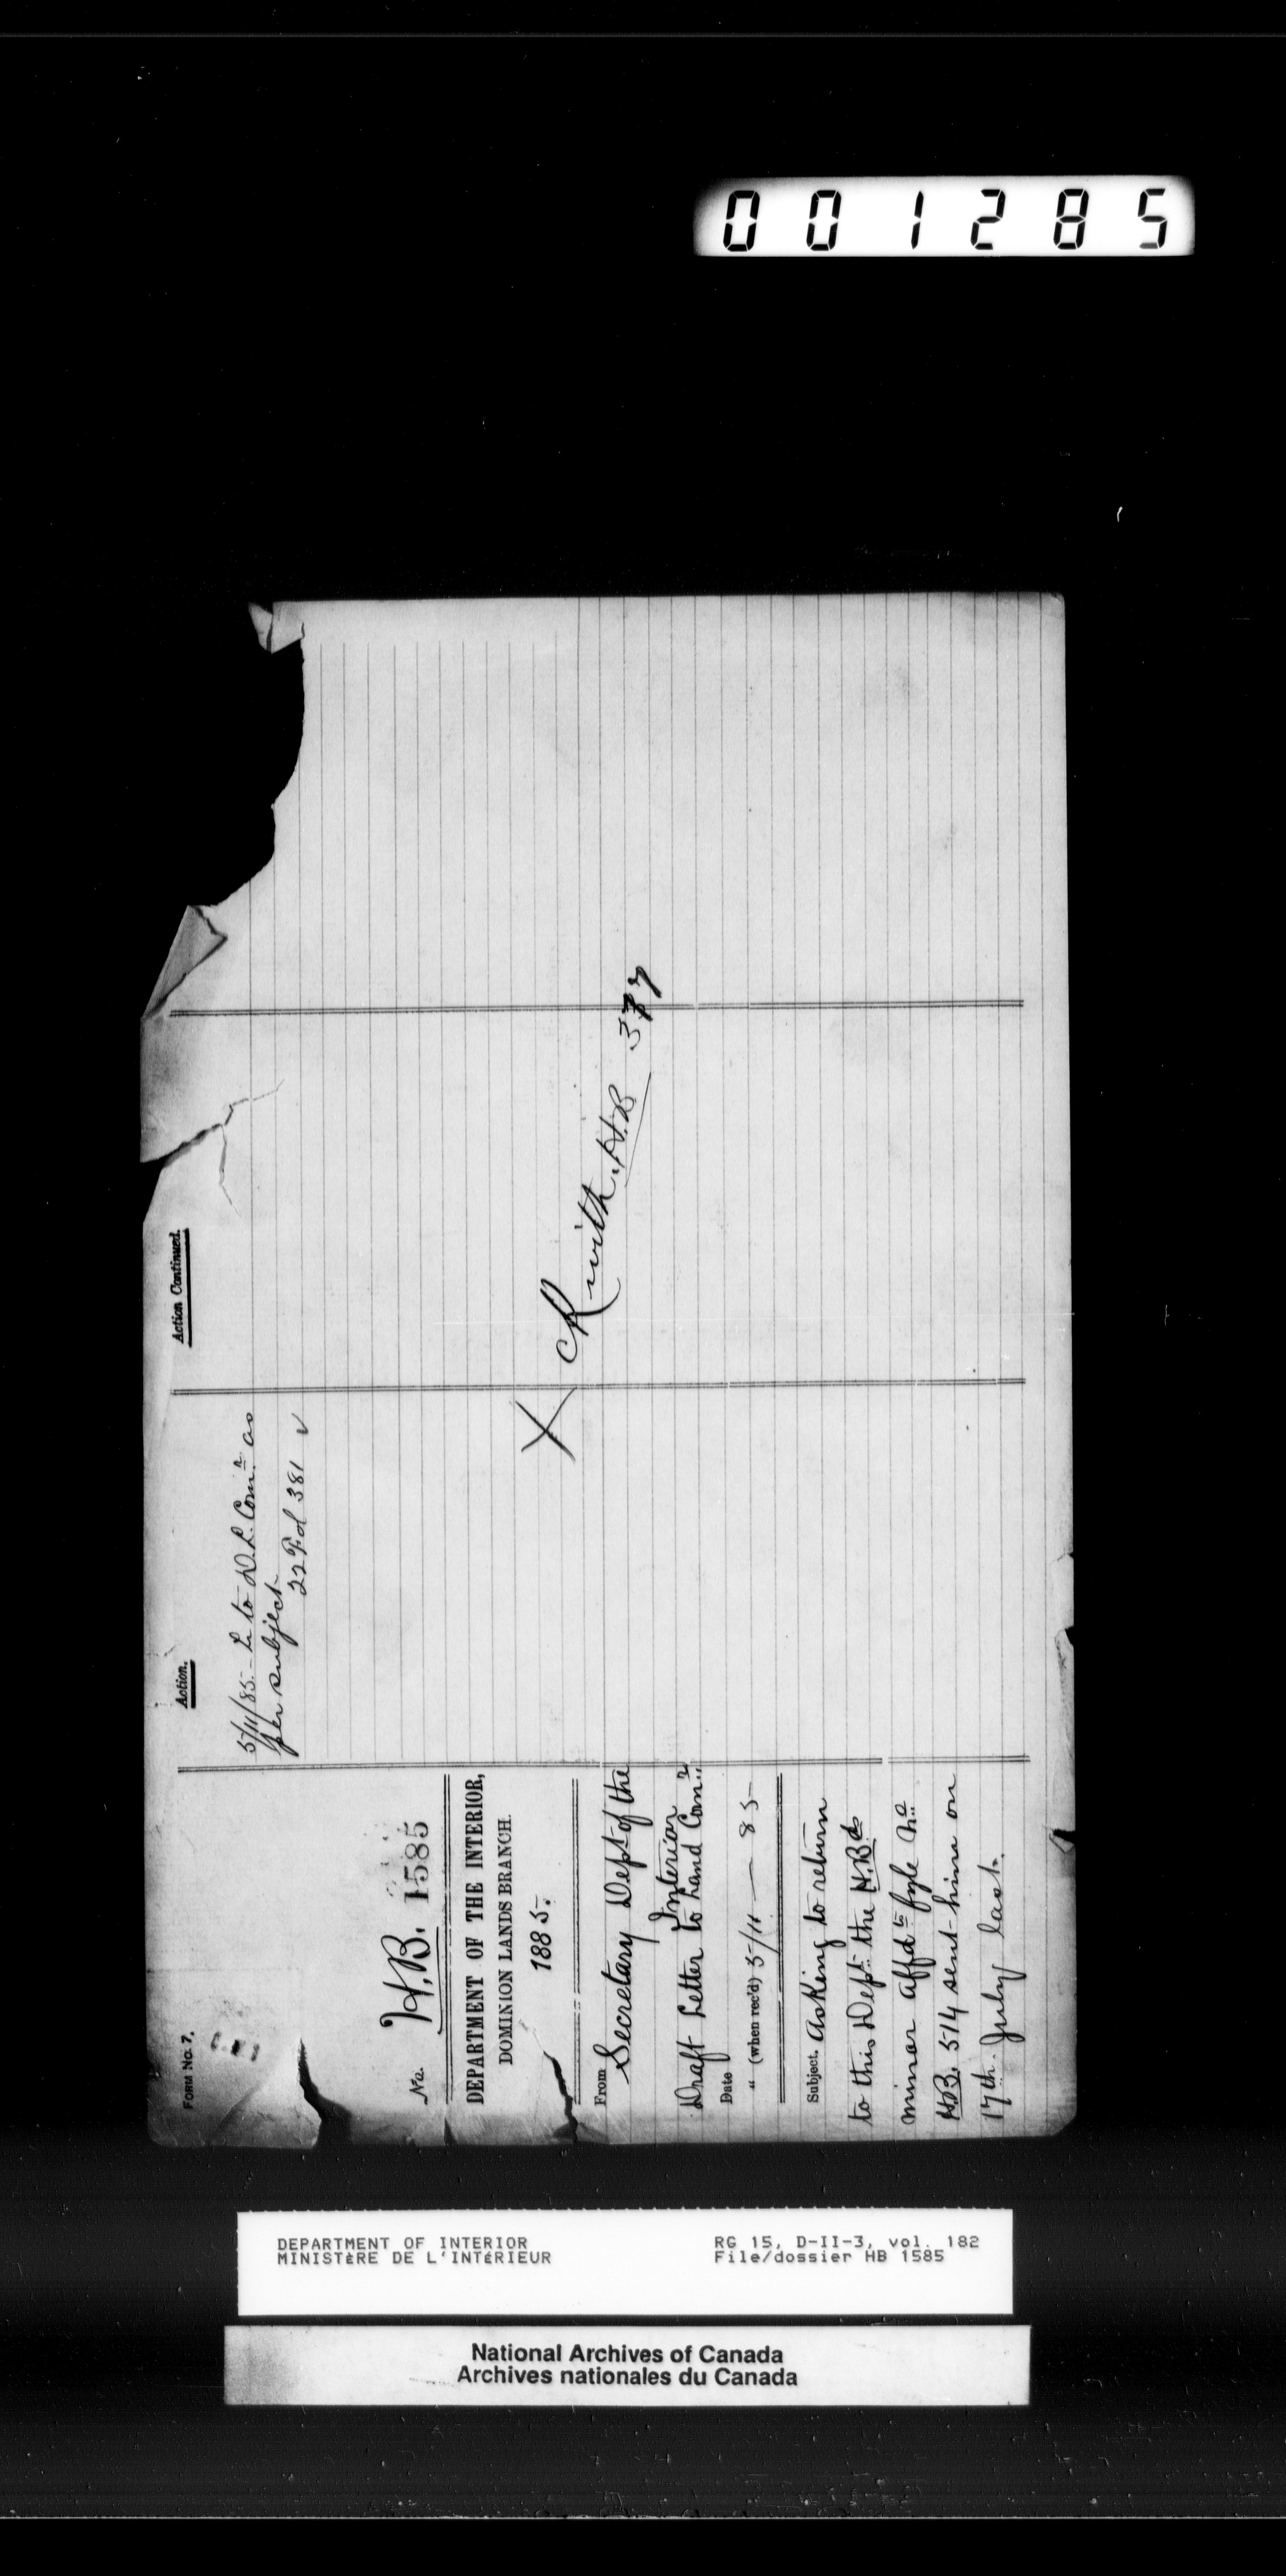 001285
FORM No. 7.
No. H.B. 1585
DEPARTMENT OF THE INTERIOR,
DOMINION LANDS BRANCH.
1885.
From Secretary Dept of the
Interior
Draft Letter to Land Comr
Date
" (when rec'd) 5/11 — 85
Subject. Asking to return
to this Dept. the H.Bd
minor affdts fyle No
H.B. 514 sent him on
17th July last.
Action.
5/11/85. - L to D.L. Comr. as
per subject
22 Fol 381 ✓
Action Continued.
X
with H.B 377
DEPARTMENT OF INTERIOR
MINISTÈRE DE L'INTÉRIEUR
RG 15, D-II-3, vol. 182
File/dossier HB 1585
National Archives of Canada
Archives nationales du Canada